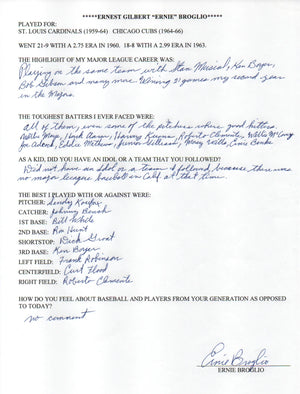 *****ERNEST GILBERT "ERNIE" BROGLIO*****
PLAYED FOR:
ST. LOUIS CARDINALS (1959-64) CHICAGO CUBS (1964-66)
WENT 21-9 WITH A 2.75 ERA IN 1960. 18-8 WITH A 2.99 ERA IN 1963.
THE HIGHLIGHT OF MY MAJOR LEAGUE CAREER WAS:
Playing on the same team with Stan Musial, Ken Boyer,
Bob Gibson and many more. Winning 21 games my second year
in the Majors.
THE TOUGHEST BATTERS I EVER FACED WERE:
All of them, even some of the pitchers where good hitters.
Willie Mays, Hank Aaron, Harvey Kuenn, Roberto Clemente, Willie McCovey
Joe Adcock, Eddie Mathews, Junior Gilliam, Maury Wills, Ernie Banks
AS A KID, DID YOU HAVE AN IDOL OR A TEAM THAT YOU FOLLOWED?
Did not have an idol or a team I followed because there was
no major league baseball in Calif at that time.
THE BEST I PLAYED WITH OR AGAINST WERE:
PITCHER: Sandy Koufax
CATCHER: Johnny Bench
1ST BASE: Bill White
2ND BASE: Ron Hunt
SHORTSTOP: Dick Groat
3RD BASE: Ken Boyer
LEFT FIELD: Frank Robinson
CENTERFIELD: Curt Flood
RIGHT FIELD: Roberto Clemente
HOW DO YOU FEEL ABOUT BASEBALL AND PLAYERS FROM YOUR GENERATION AS OPPOSED
TO TODAY?
no comment
Ernie Broglio
ERNIE BROGLIO